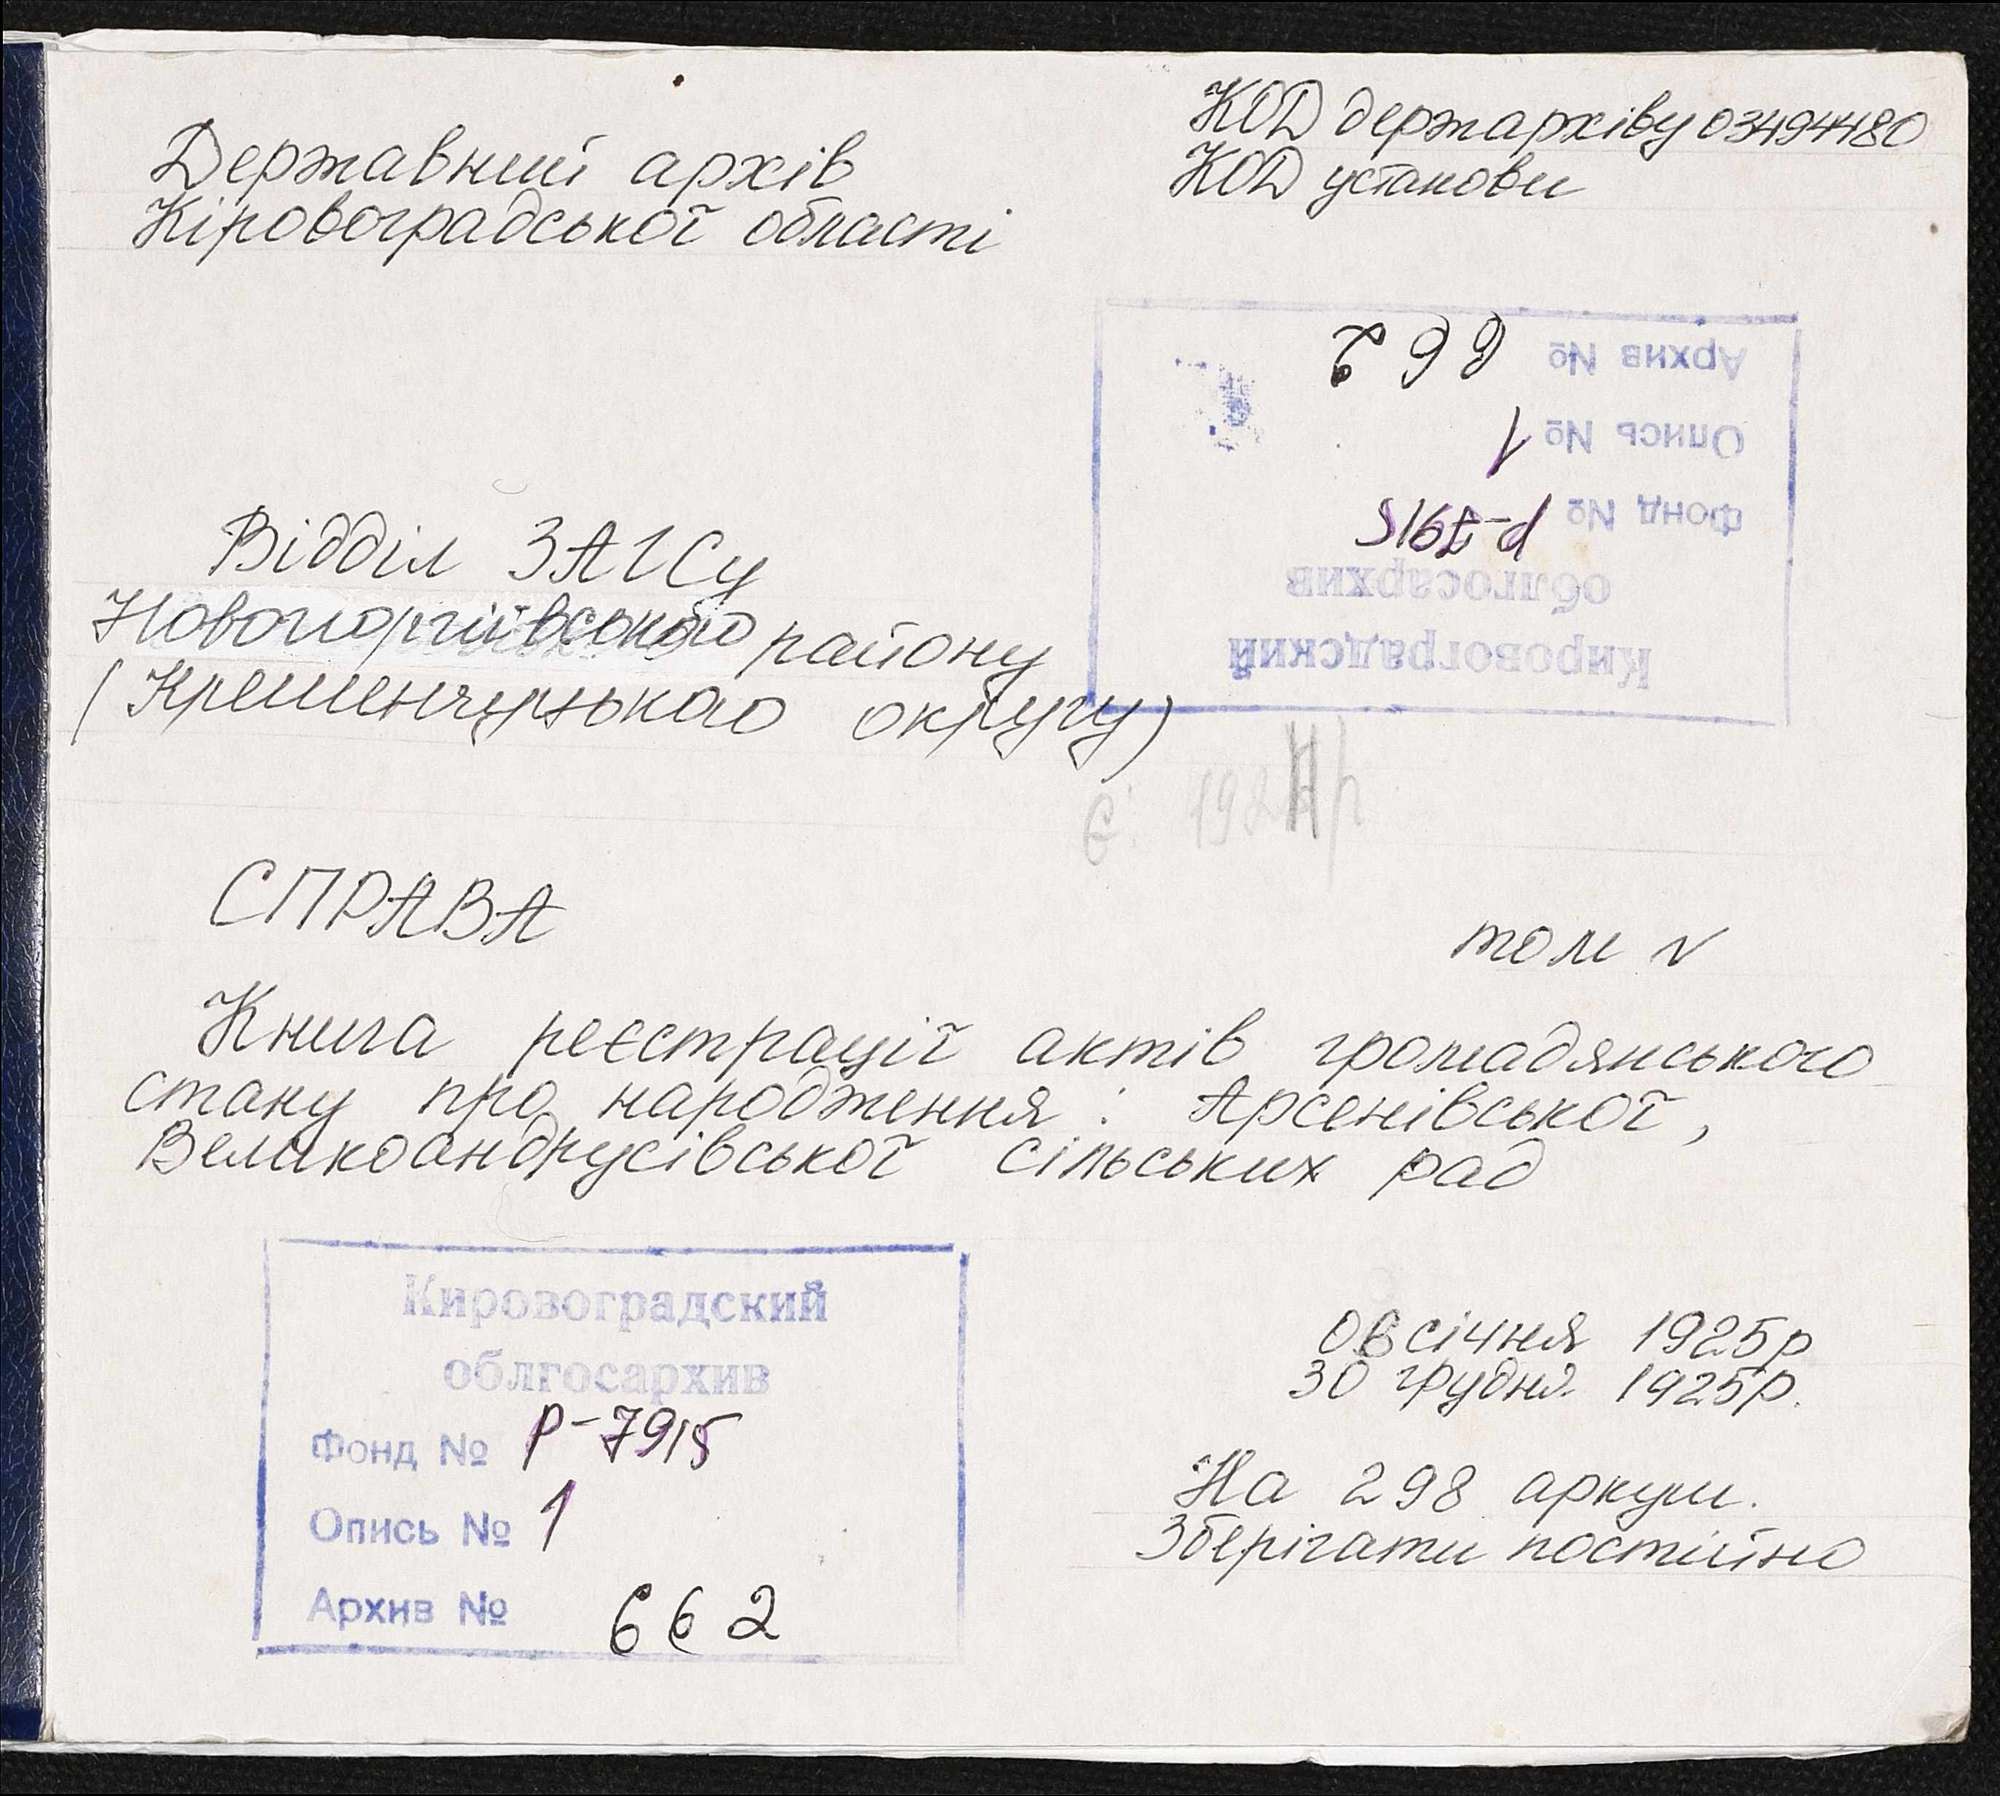 Державний архів
Кіровоградської області
КОД держархіву 03494480
КОД установи
Архив № 662
Опись № 1
Фонд № Р-7915
облгосархив
Кировоградский
Відділ ЗАГСу
Новогеоргіївського району
(Кременчуцького округу)
є: 192
СПРАВА
том N
Книга реєстрації актів громадянського
стану про народження: Арсенівської,
Великоандрусівської сільських рад
Кировоградский
облгосархив
Фонд № Р-7915
Опись № 1
Архив № 662
06 січня 1925р
30 грудня 1925р.
На 298 аркуш.
Зберігати постійно